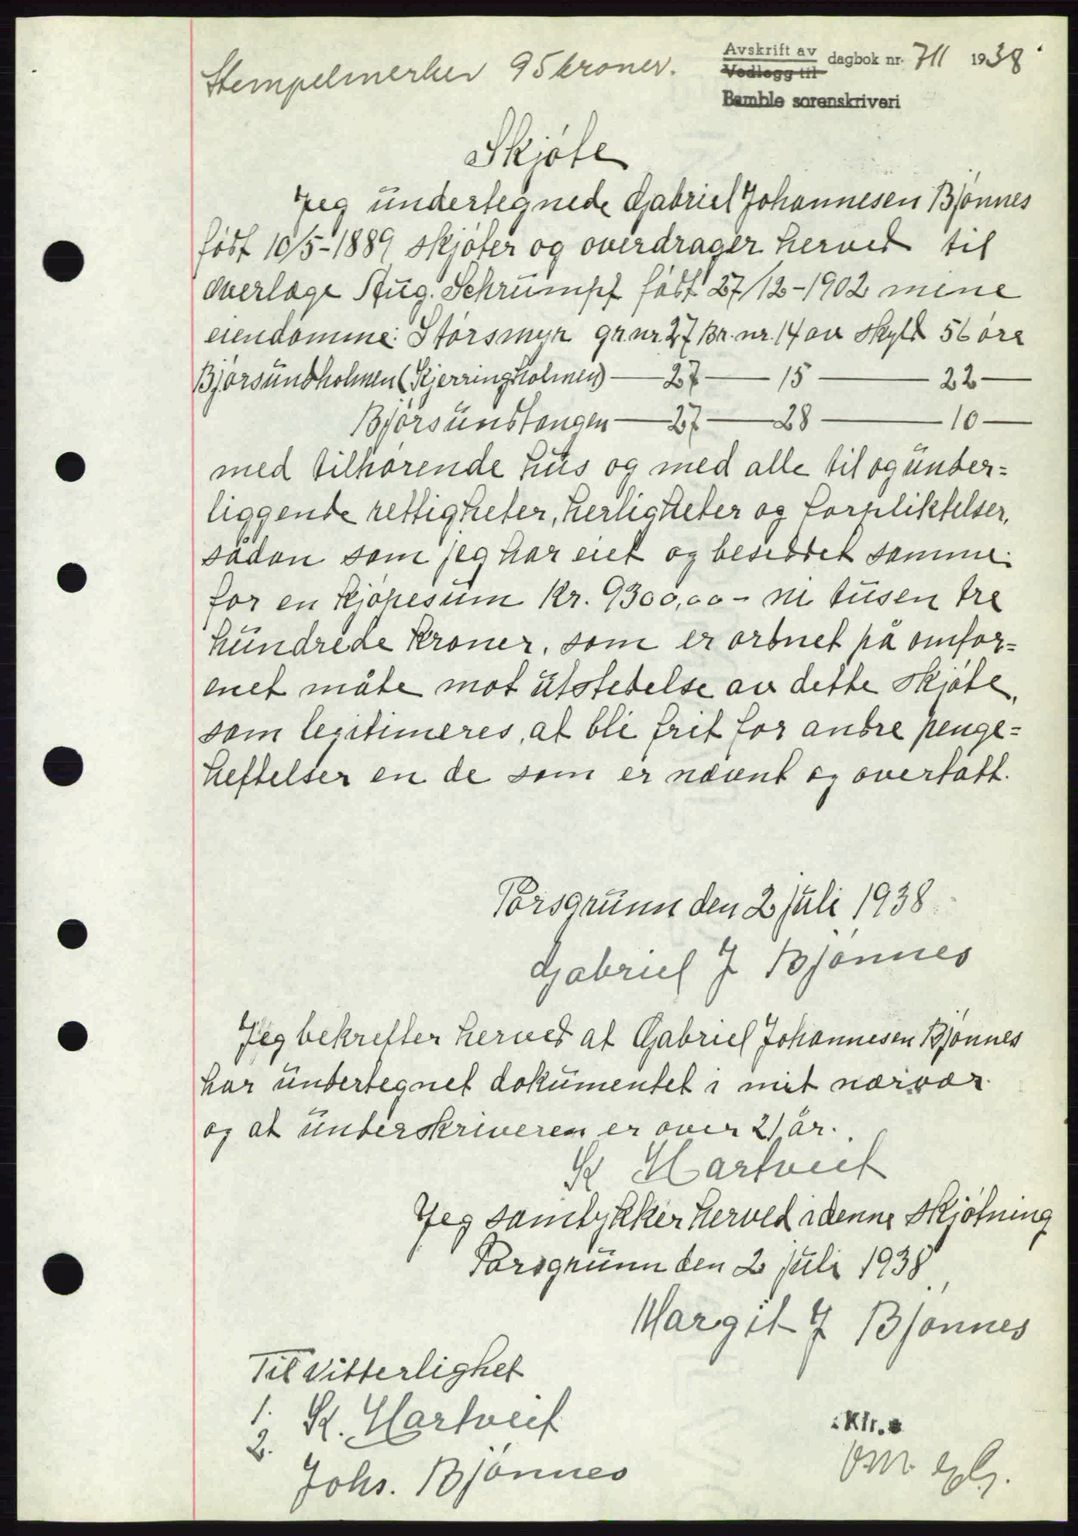 Stempelmerker 95 kroner.
Avskrift av
Vedlegg til
dagbok nr. 711 1938
Bamble sorenskriveri
Skjøte
Jeg undertegnede Gabriel Johannesen Bjønnes
født 10/5-1889 skjøter og overdrager herved til
overlæge Aug. Schrumpf født 27/12-1902 mine
eiendomme: Størsmyr gr.nr. 27 Br.nr. 14 av skyld 56 øre
Bjørsundholmen (Kjerringholmen) — 27 — 15 — 22 —
Bjørsundtangen — 27 — 28 — 10 —
med tilhørende hus og med alle til og under=
liggende rettigheter, herligheter og forpliktelser,
sådan som jeg har eiet og besiddet samme.
for en kjøpesum Kr. 9300,00 - ni tusen tre
hundrede kroner, som er ordnet på omfor=
enet måte mot utstedelse av dette skjøte,
som legitimeres, at bli frit for andre penge=
heftelser en de som er nævnt og overtatt.
Porsgrunn den 2 juli 1938
Gabriel J Bjønnes
Jeg bekrefter herved at Gabriel Johannesen Bjønnes
har undertegnet dokumentet i mit nærvær
og at underskriveren er over 21 år.
K Hartveit
Jeg samtykker herved i denne skjøtning
Porsgrunn den 2 juli 1938
Margit J Bjønnes
Til Vitterlighet
1. K. Hartveit
2.
Johs. Bjønnes
Kfr.